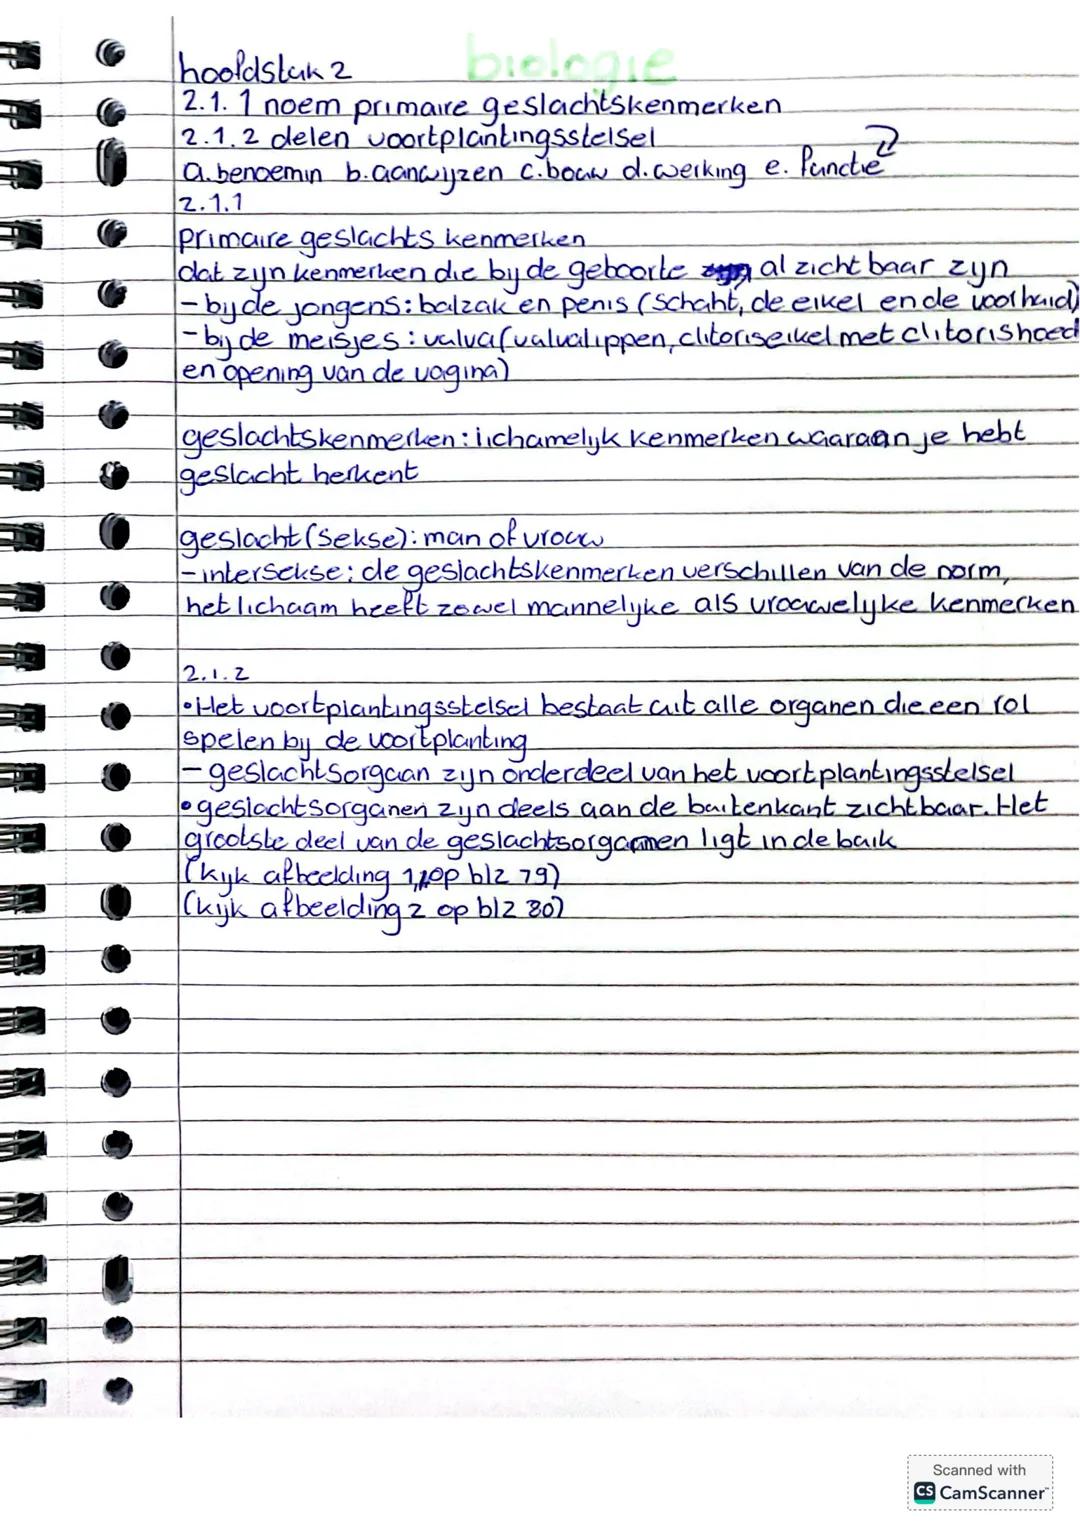 biologie
hoofdstuk 2
2.1.1 noem primaire geslachtskenmerken
2.1.2 delen voortplantingsstelsel
a.benoemin b.aanwijzen c.bouw d.werking e. functie
2.1.1
primaire geslachts kenmerken
dat zijn kenmerken die bij de geboorte al zichtbaar zijn
- bij de jongens: balzak en penis (Schaht, de eikel en de voorhuid)
- bij de meisjes: vulva(vulvalippen, clitoriseikel met clitorishoed
en opening van de vagina)
geslachtskenmerken: lichamelijk kenmerken waaraan je hebt
geslacht herkent
geslacht (Sekse): man of vrouw
- intersekse: de geslachtskenmerken verschillen van de norm,
het lichaam heeft zowel mannelijke als vrouwelijke kenmerken
2.1.2
• Het voortplantingsstelsel bestaat uit alle organen die een rol
spelen bij de voortplanting
- geslachtsorgaan zijn onderdeel van het voortplantingsstelsel
• geslachtsorganen zijn deels aan de buitenkant zichtbaar. Het
grootste deel van de geslachtsorganen ligt in de buik
(kijk afbeelding 1, op blz 79)
(kijk afbeelding 2 op blz 80)
Scanned with
CS CamScanner